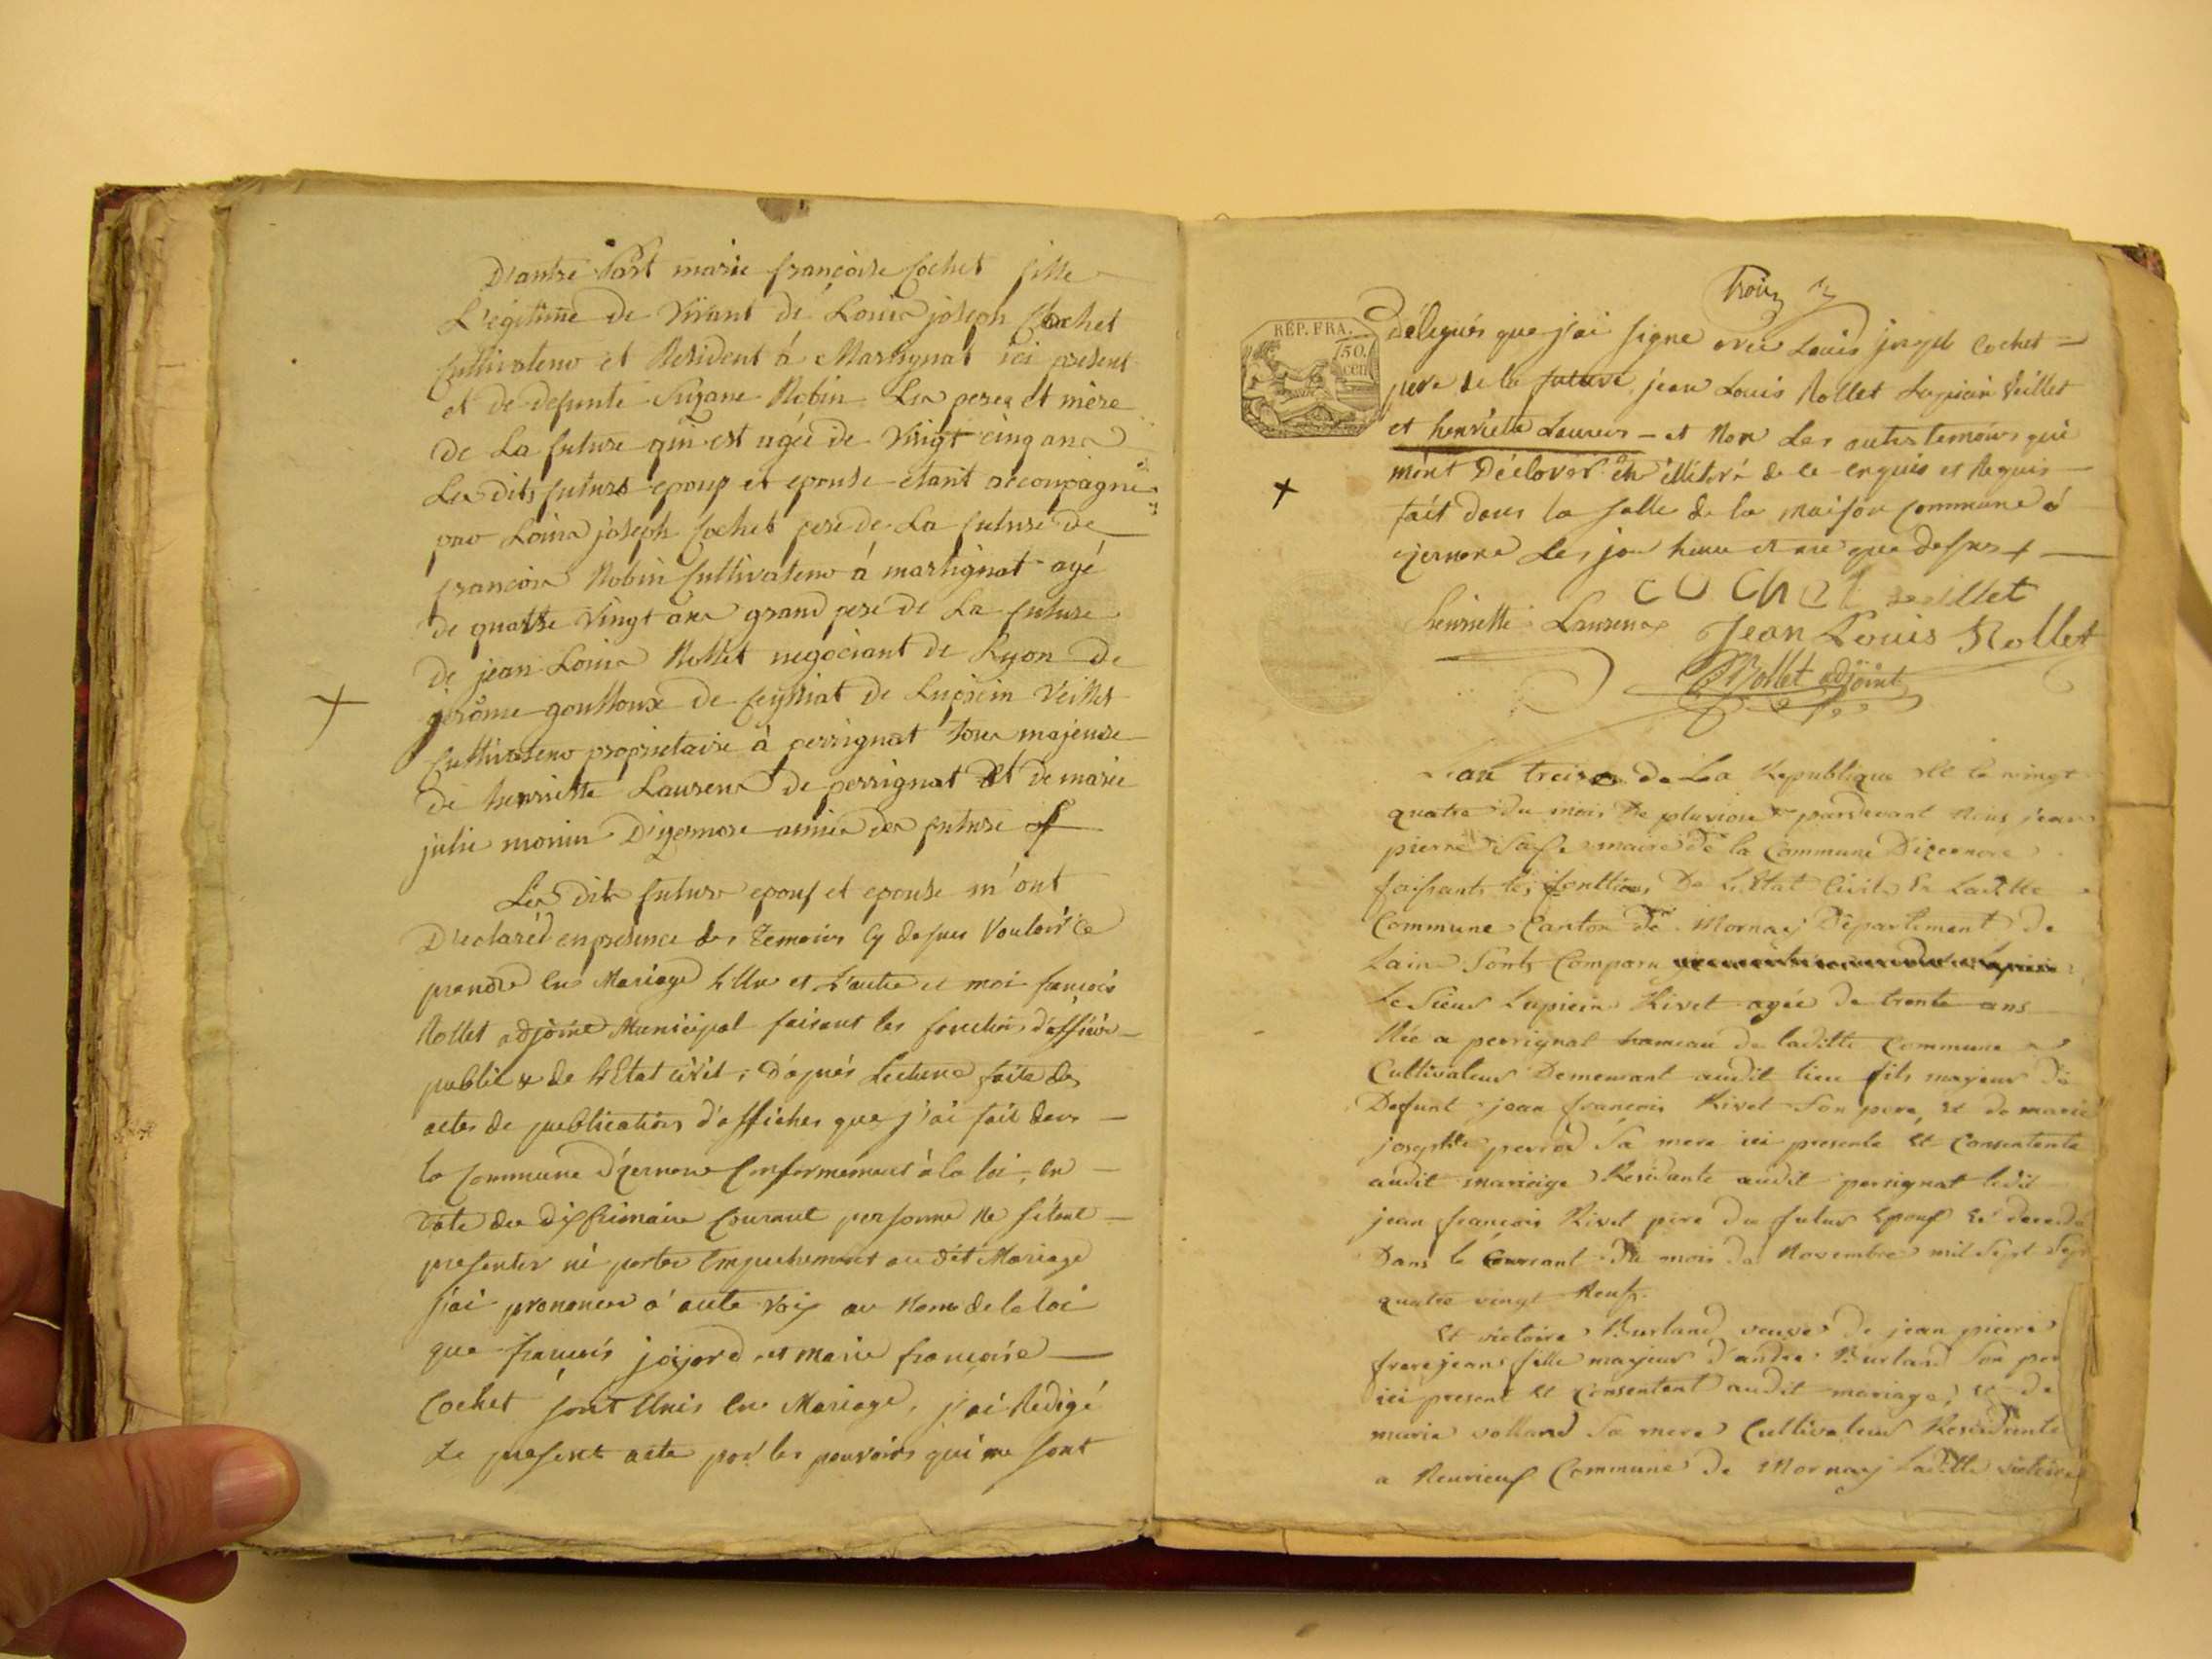 D'autre Part marie françoise Cochet fille
L'egitime de vivant de Louis joseph Cochet
Cultivateur et Resident á Martignat ici present
et de defunte Suzane Robin Les peres et mère
de La future qui est agée de vingt cinq ans
Les dits futurs epoux et epouse etant accompagnés
par Louis joseph Cochet pere de La future de
françois Robin Cultivateur á martignat agé
de quatre vingt ans grand pere de La future
de jean Louis Rollet négociant de Lyon de
jérôme gouttoux de Ceyssiat de Lupicin Veillet
Cultivateur proprietaire à perrignat tous majeurs
de henriette Laurens de perrignat Et de marie
julie monin D'izernore amies des futurs
Les dits futurs epoux et epouse m'ont
Déclaréd en presence des Temoins cy dessus Vouloir ce
prendre en Mariage L'Un et L'autre et moi francois
Rollet adjoint Municipal faisant les fonctions d'officier
public de L'Etat civil ; d'après Lecture faite des
actes de publications d'affiches que j'ai fait dans
la Commune d'izernore Conformement à la loi, en
date du dix frimaire Courant personne ne s'étant
presenter ni porter Empechement au dit Mariage
j'ai prononcer a aute voix au Nom de la loi
que francois jojard et marie francoise
Cochet sont Unis en Mariage, j'ai Redigé
Le present acte par les pouvoirs qui me sont
Trois
RÉP. FRA.
50.
cen
délegués que j'ai signe avec Louis joseph Cochet
pere de la future, jean Louis Rollet Lupicin Veillet
et henriette Laurens et Non Les autres temoins qui
m'ont Déclarer etre illiteré de ce enquis et Requis
fait dans la salle de la maison Commune d
izernore Les jour heure et an que dessus
COCHET veillet
henriette Laurens Jean Louis Rollet
Rollet adjoint
L'an treize de La Republique et le vingt
quatre du mois De pluviose pardevant Nous jean
pierre maire de la Commune Dizernore
faisants les fonttions De L'Etat Civil de Laditte
Commune Canton de Mornay Département de
Lain Sont Comparu
Le Sieur Lupicin Rivet agée de trente ans
Née a perrignat hameau de laditte Commune
Cultivateur Demeurant audit lieu fils majeur de
Defunt jean francois Rivet Son pere, et de marie
josephte Sa mere ici presente Et Consentente
audit marieige Residante audit perrignat ledit
jean francois Rivet pere du futur Epoux Et décedé
Dans le Courrant du mois de Novembre mil Sept
quatre vingt Neuf.
Et victoire Burland veuve de jean pierre
frerejeans fille majeur d'andre Burland Son per
ici present Et Consentent audit mariage, Et de
marie volland Sa mere Cultivateur Residante
a Heurieux Commune de Mornay Laditte victoire